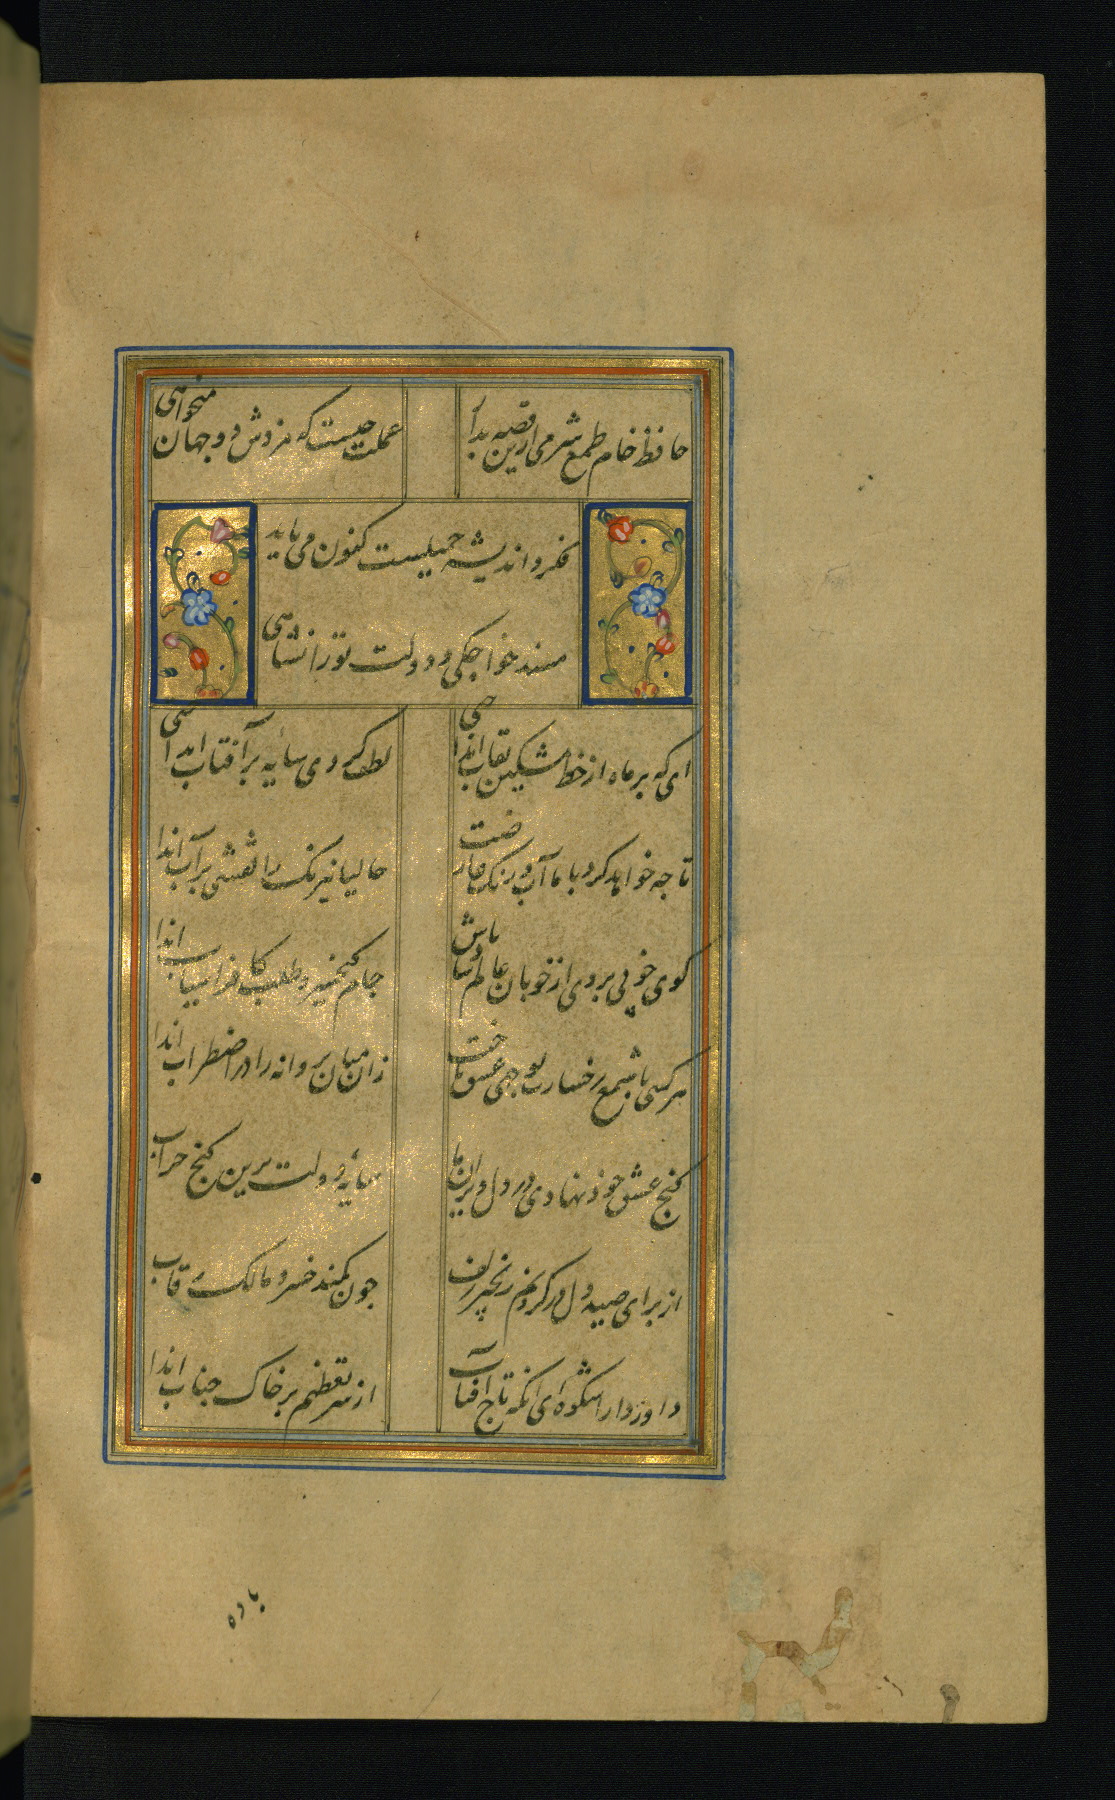 حافظ خام طمع شرمی ازین قصه بدار
عملت چیست که مزدش دو جهان میخواهی
فکر و اندیشه
کنون می باید
مسند خواجگی و دولت تورانشاهی
ای که بر ماه از خط مشکین نقاب انداختی
لطف کردی سایه بر آفتاب انداختی
تا چه خواهد کرد با ما آب و رنک عارضت
حالیا نیرنک را نقشی بر آب انداختی
کوی خوبی بردی از خوبان عالم شاد باش
جام کیخسرو طلب کافراسیاب اندا
هر کسی با شمع رخسارت بوجهی عشق باخت
زان میان پروانه را در اضطراب اندا
کنج عشق خود نهادی در دل ویران ما
سایه دولت برین کنج خراب
از برای صید دل در کردنم زنجیر زلف
چون کمند خسرو مالک رقاب
داور دارا شکوه ای آنکه تاج آفتاب
از سر تعظیم بر خاک جناب اندا
باده